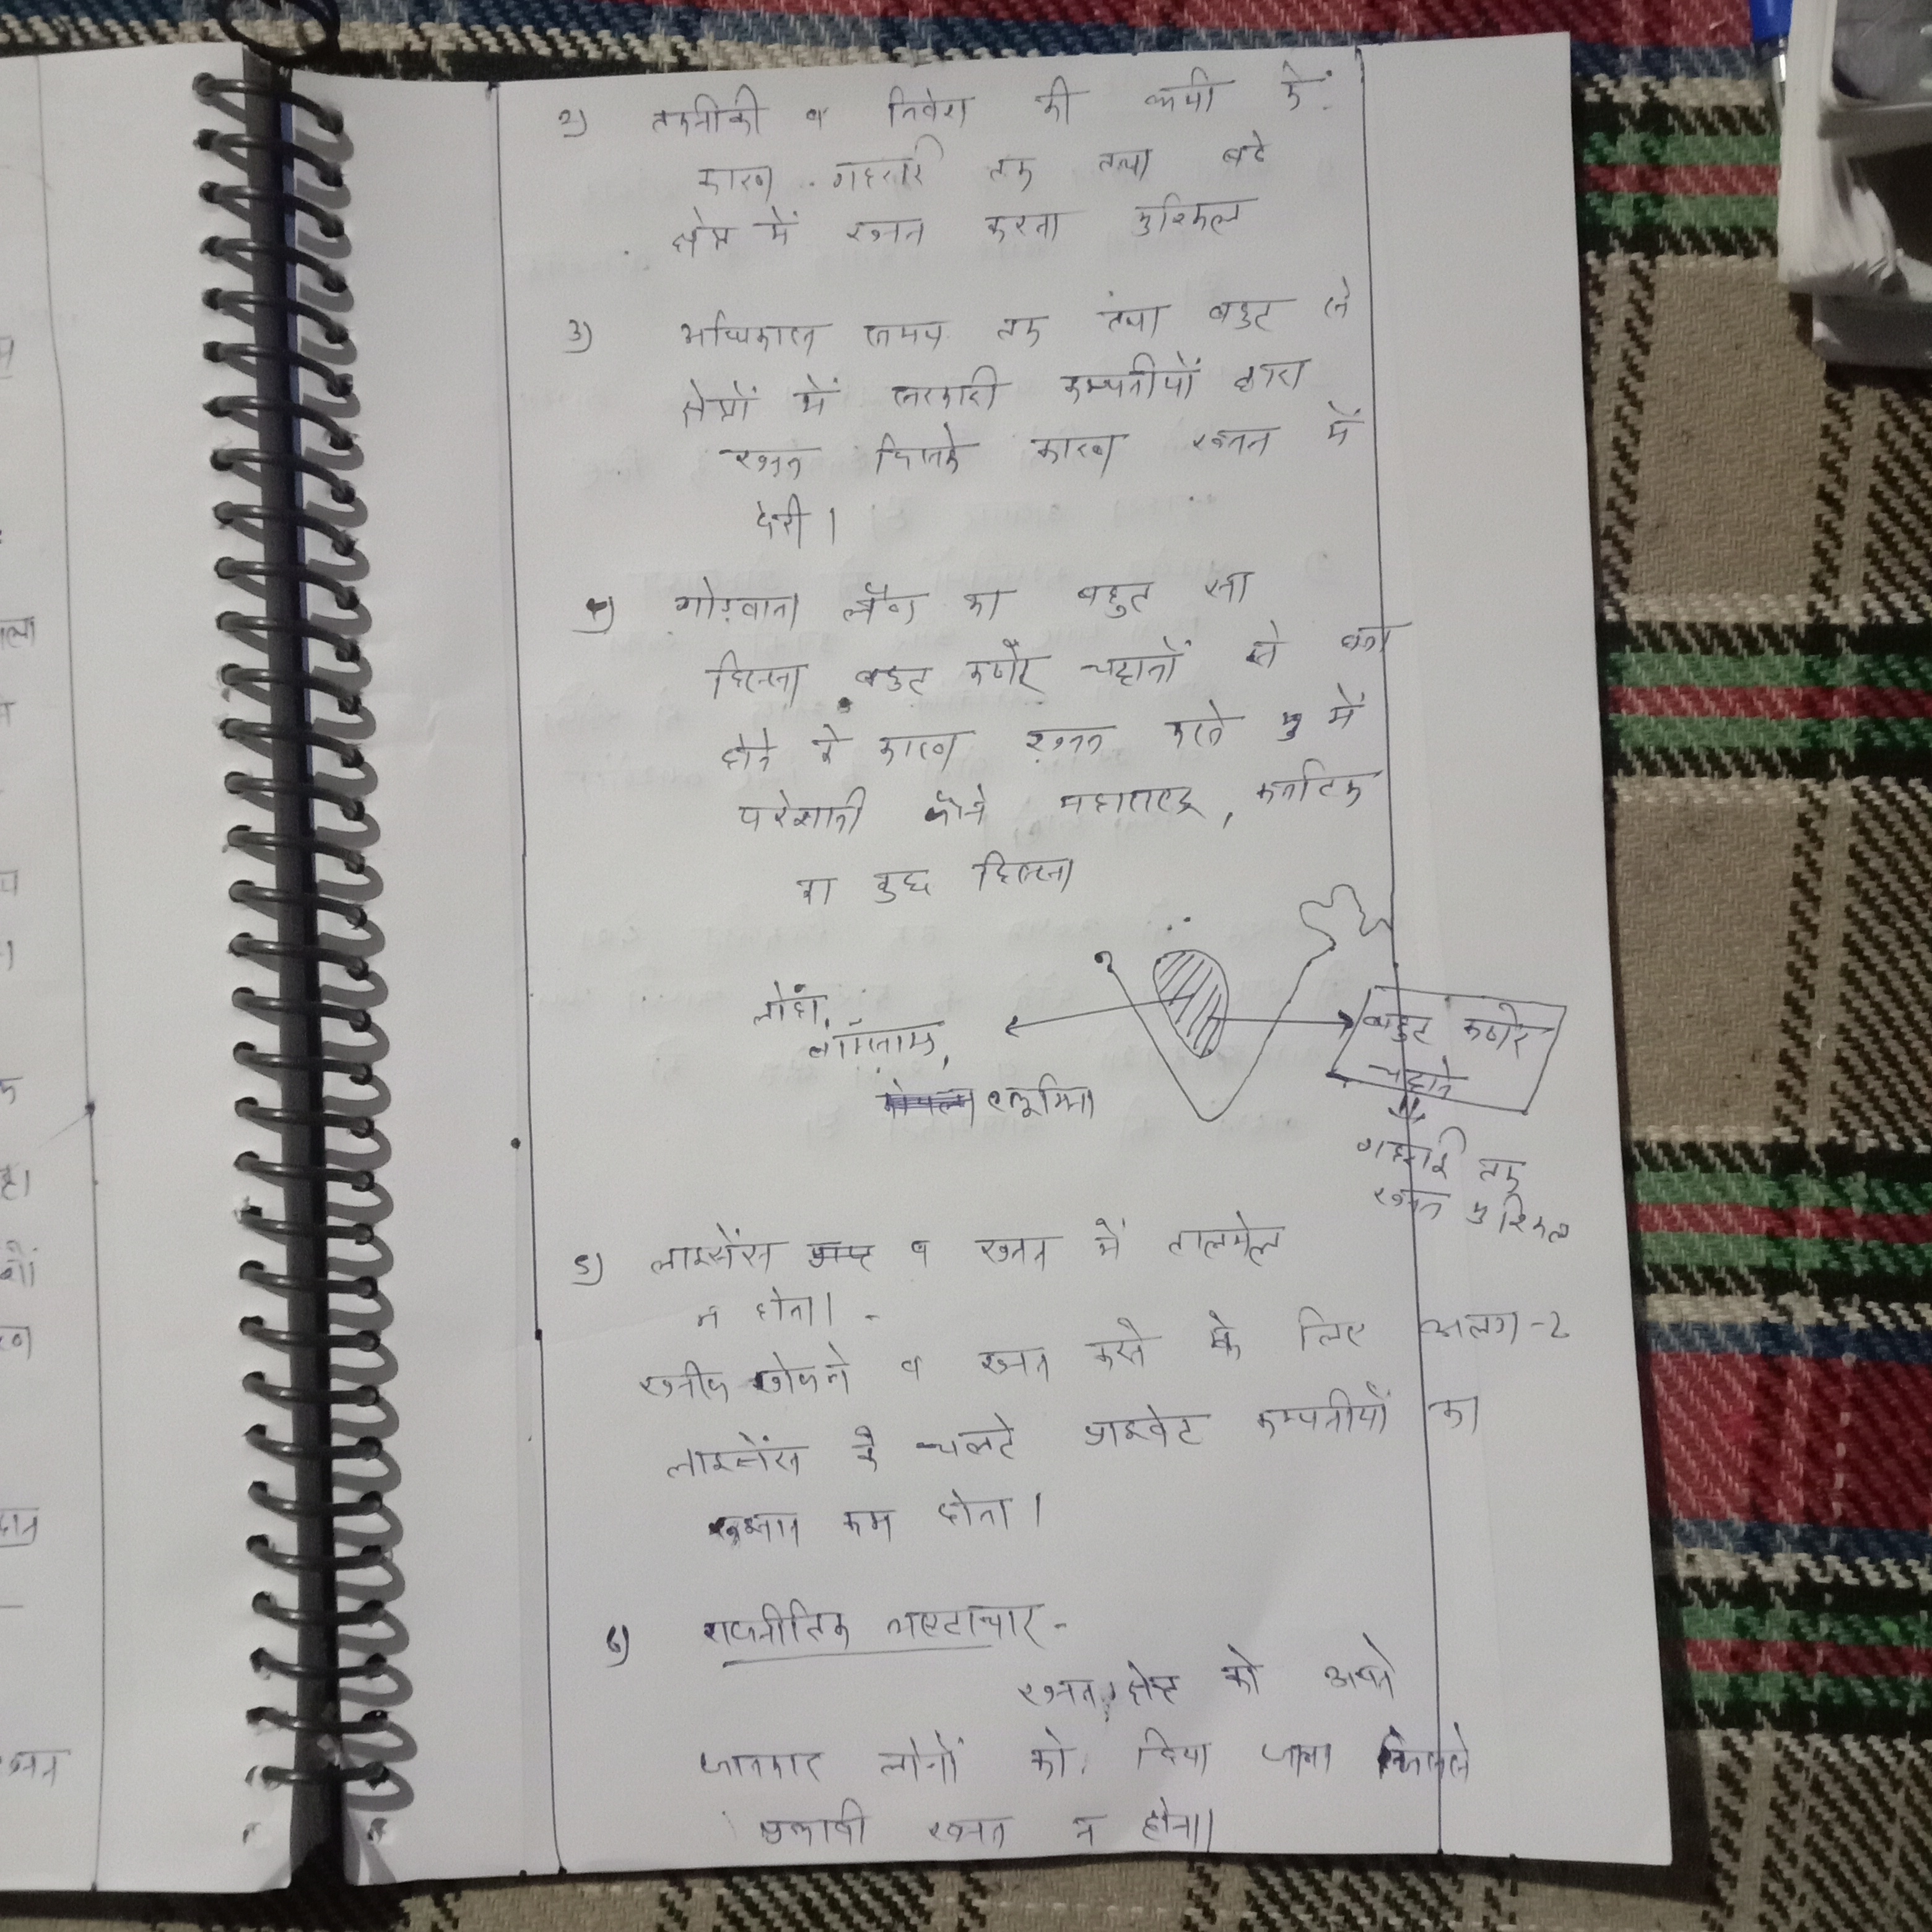 2) तकनीकी व निवेश की कमी के
कारण गहराई तक तथा बडे
क्षेत्र में खनन करना मुश्किल
3) अधिकांश समय तक तथा बहुत से
क्षेत्रों में सरकारी कम्पनीयों द्वारा
खनन जिसके कारण खनन में
देरी।
4) गोंडवाना लैंण्ड का बहुत सा
हिस्सा बहुत कठोर चट्टानों से बना
होने के कारण खनन करने में
परेशानी जैसे महाराष्ट्र, कर्नाटक
का कुछ हिस्सा
लोहा,
बहुत कठोर
चट्टाने
गहराई तक
खनन मुश्किल
5) लाइसेंस व खनन में तालमेल
न होना। -
खनीज खोजने व खनन करने के लिए अलग-2
लाइसेंस के चलते प्राइवेट कम्पनीयों का
रुझान कम होना।
6) राजनीतिक भ्रष्टाचार -
खनन क्षेत्र को अपने
जानकार लोगों को दिया जाना जिससे
प्रभावी खनन न होना।